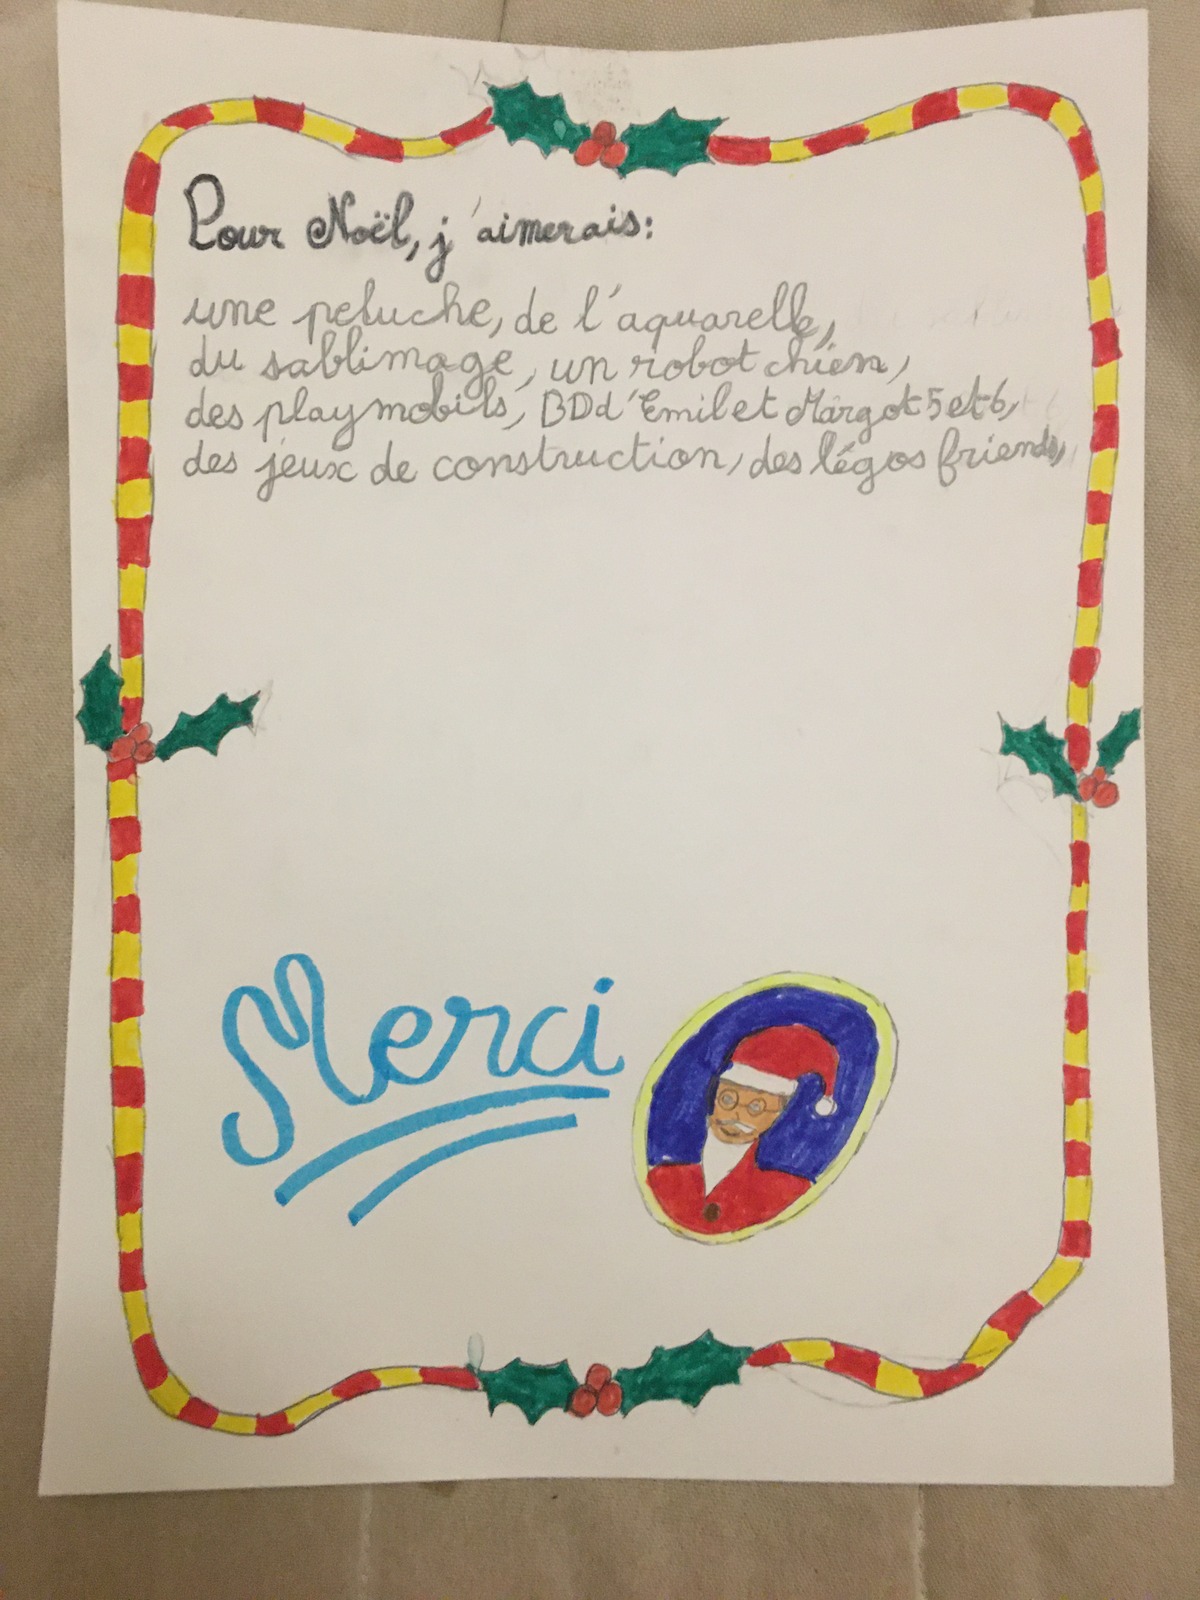 Pour Noël, j'aimerais:
une peluche, de l'aquarelle,
du sablimage, un robot chien,
des playmobils, BD d'Emil et Margot 5 et 6,
des jeux de construction, des légos friends,
Merci